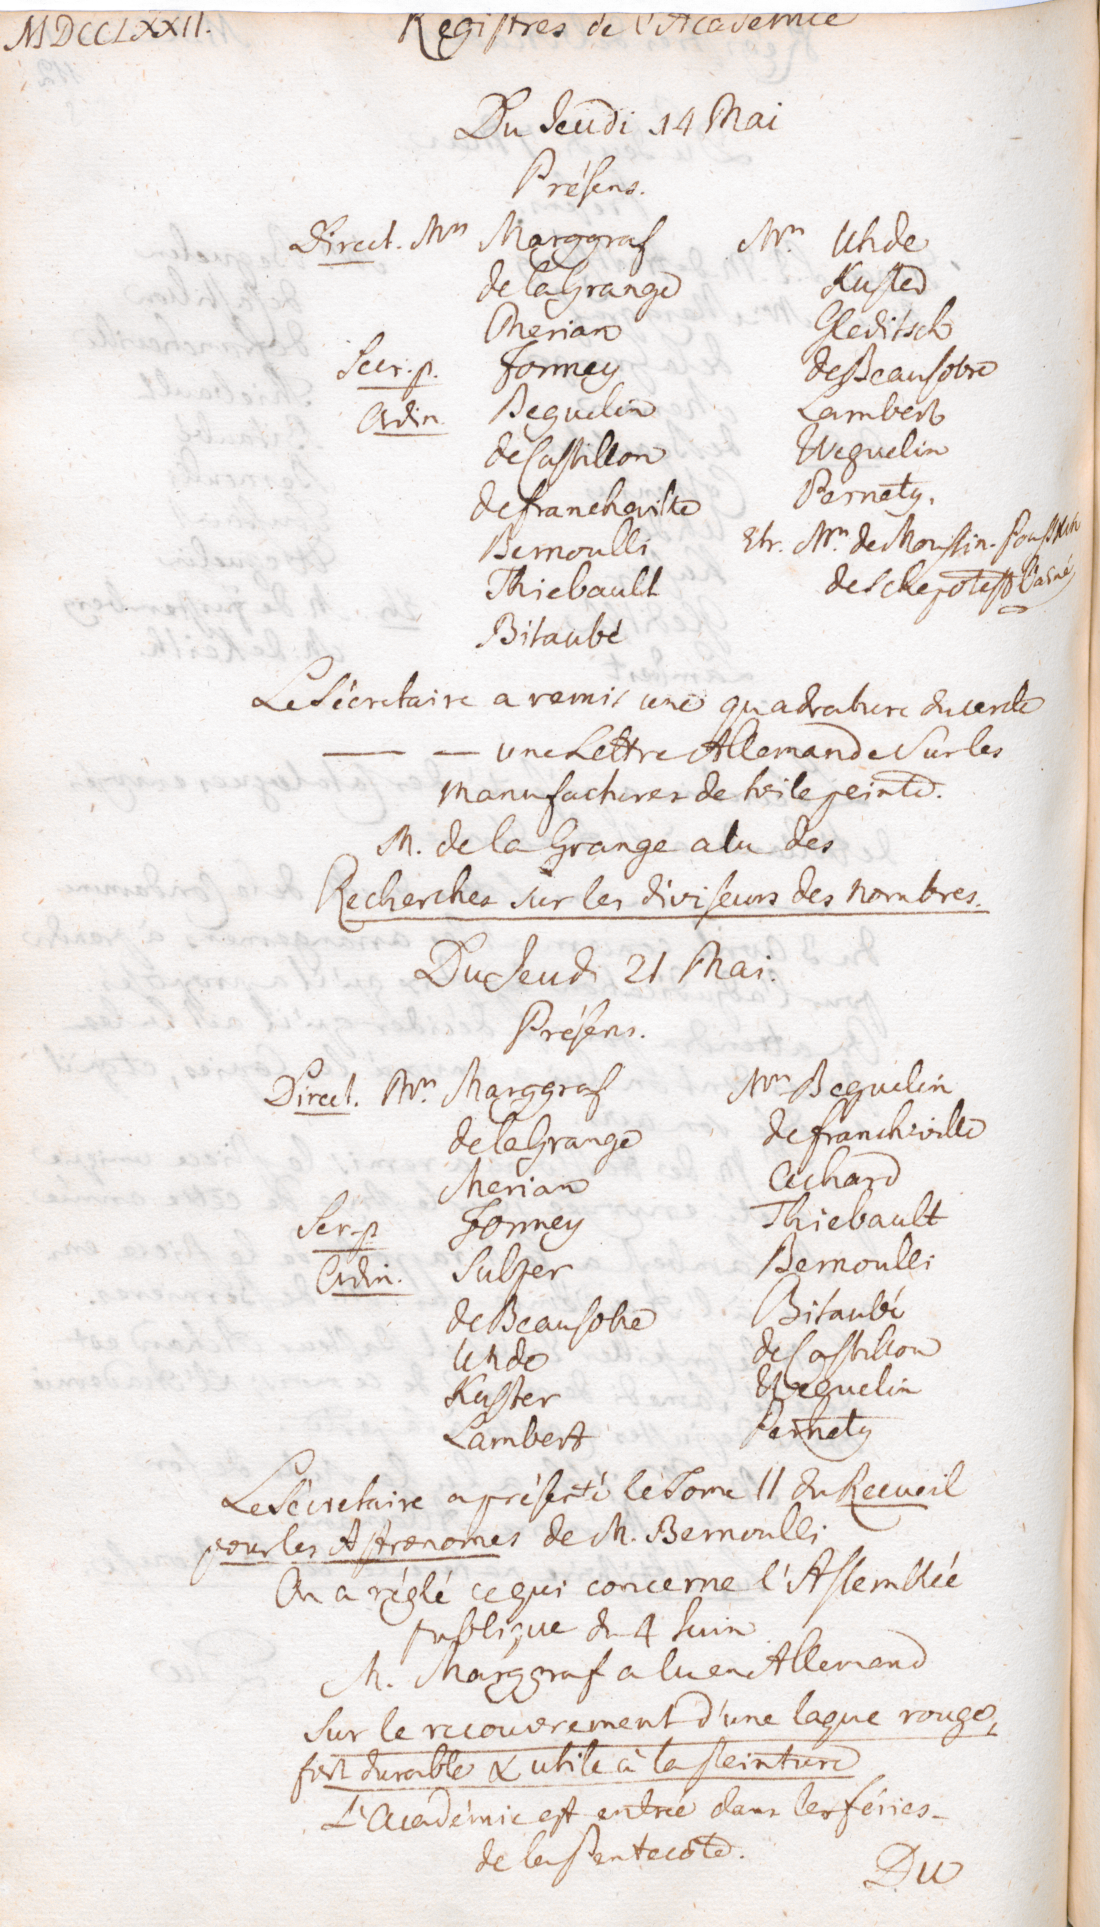 MDCCLXXII.
Registres de l'Academie
Du Jeudi 14 Mai
Présens.
Direct. Mrs Marggraf Mrs Uhde
de la Grange Kuster
Merian Gleditsch
Secr. p. Formey de Beausobre
Ordin. Beguelin Lambert
de Castillon Weguelin
de francheville Pernety.
Bernoulli Etr. Mrs de Moussin-Pouschkin
Thiebault de
Bitaubé
Le Sécretaire a remis une quadrature du cercle
— — une Lettre Allemande sur les
manufactures de toile peinte.
M. de la Grange a lu des
Recherches sur les diviseurs des nombres.
Du Jeudi 21 Mai.
Présens.
Direct. Mrs. Marggraf Mrs Beguelin
de la Grange de francheville
Merian Achard
Secr. p Formey Thiebault
Ordin. Sulzer Bernoulli
de Beausobre Bitaubé
Uhde de Castillon
Kuster Weguelin
Lambert Pernety
Le Sécretaire a présenté le Tome II du Recueil
pour les Astronomes de M. Bernoulli
On a réglé ce qui concerne l'Assemblée
publique du 4 Juin
M. Marggraf a lu en Allemand
sur le recouvrement d'une laque rouge,
fort durable & utile à la peinture
L'Académie est entrée dans les féries
de la Pentecôte.
Du